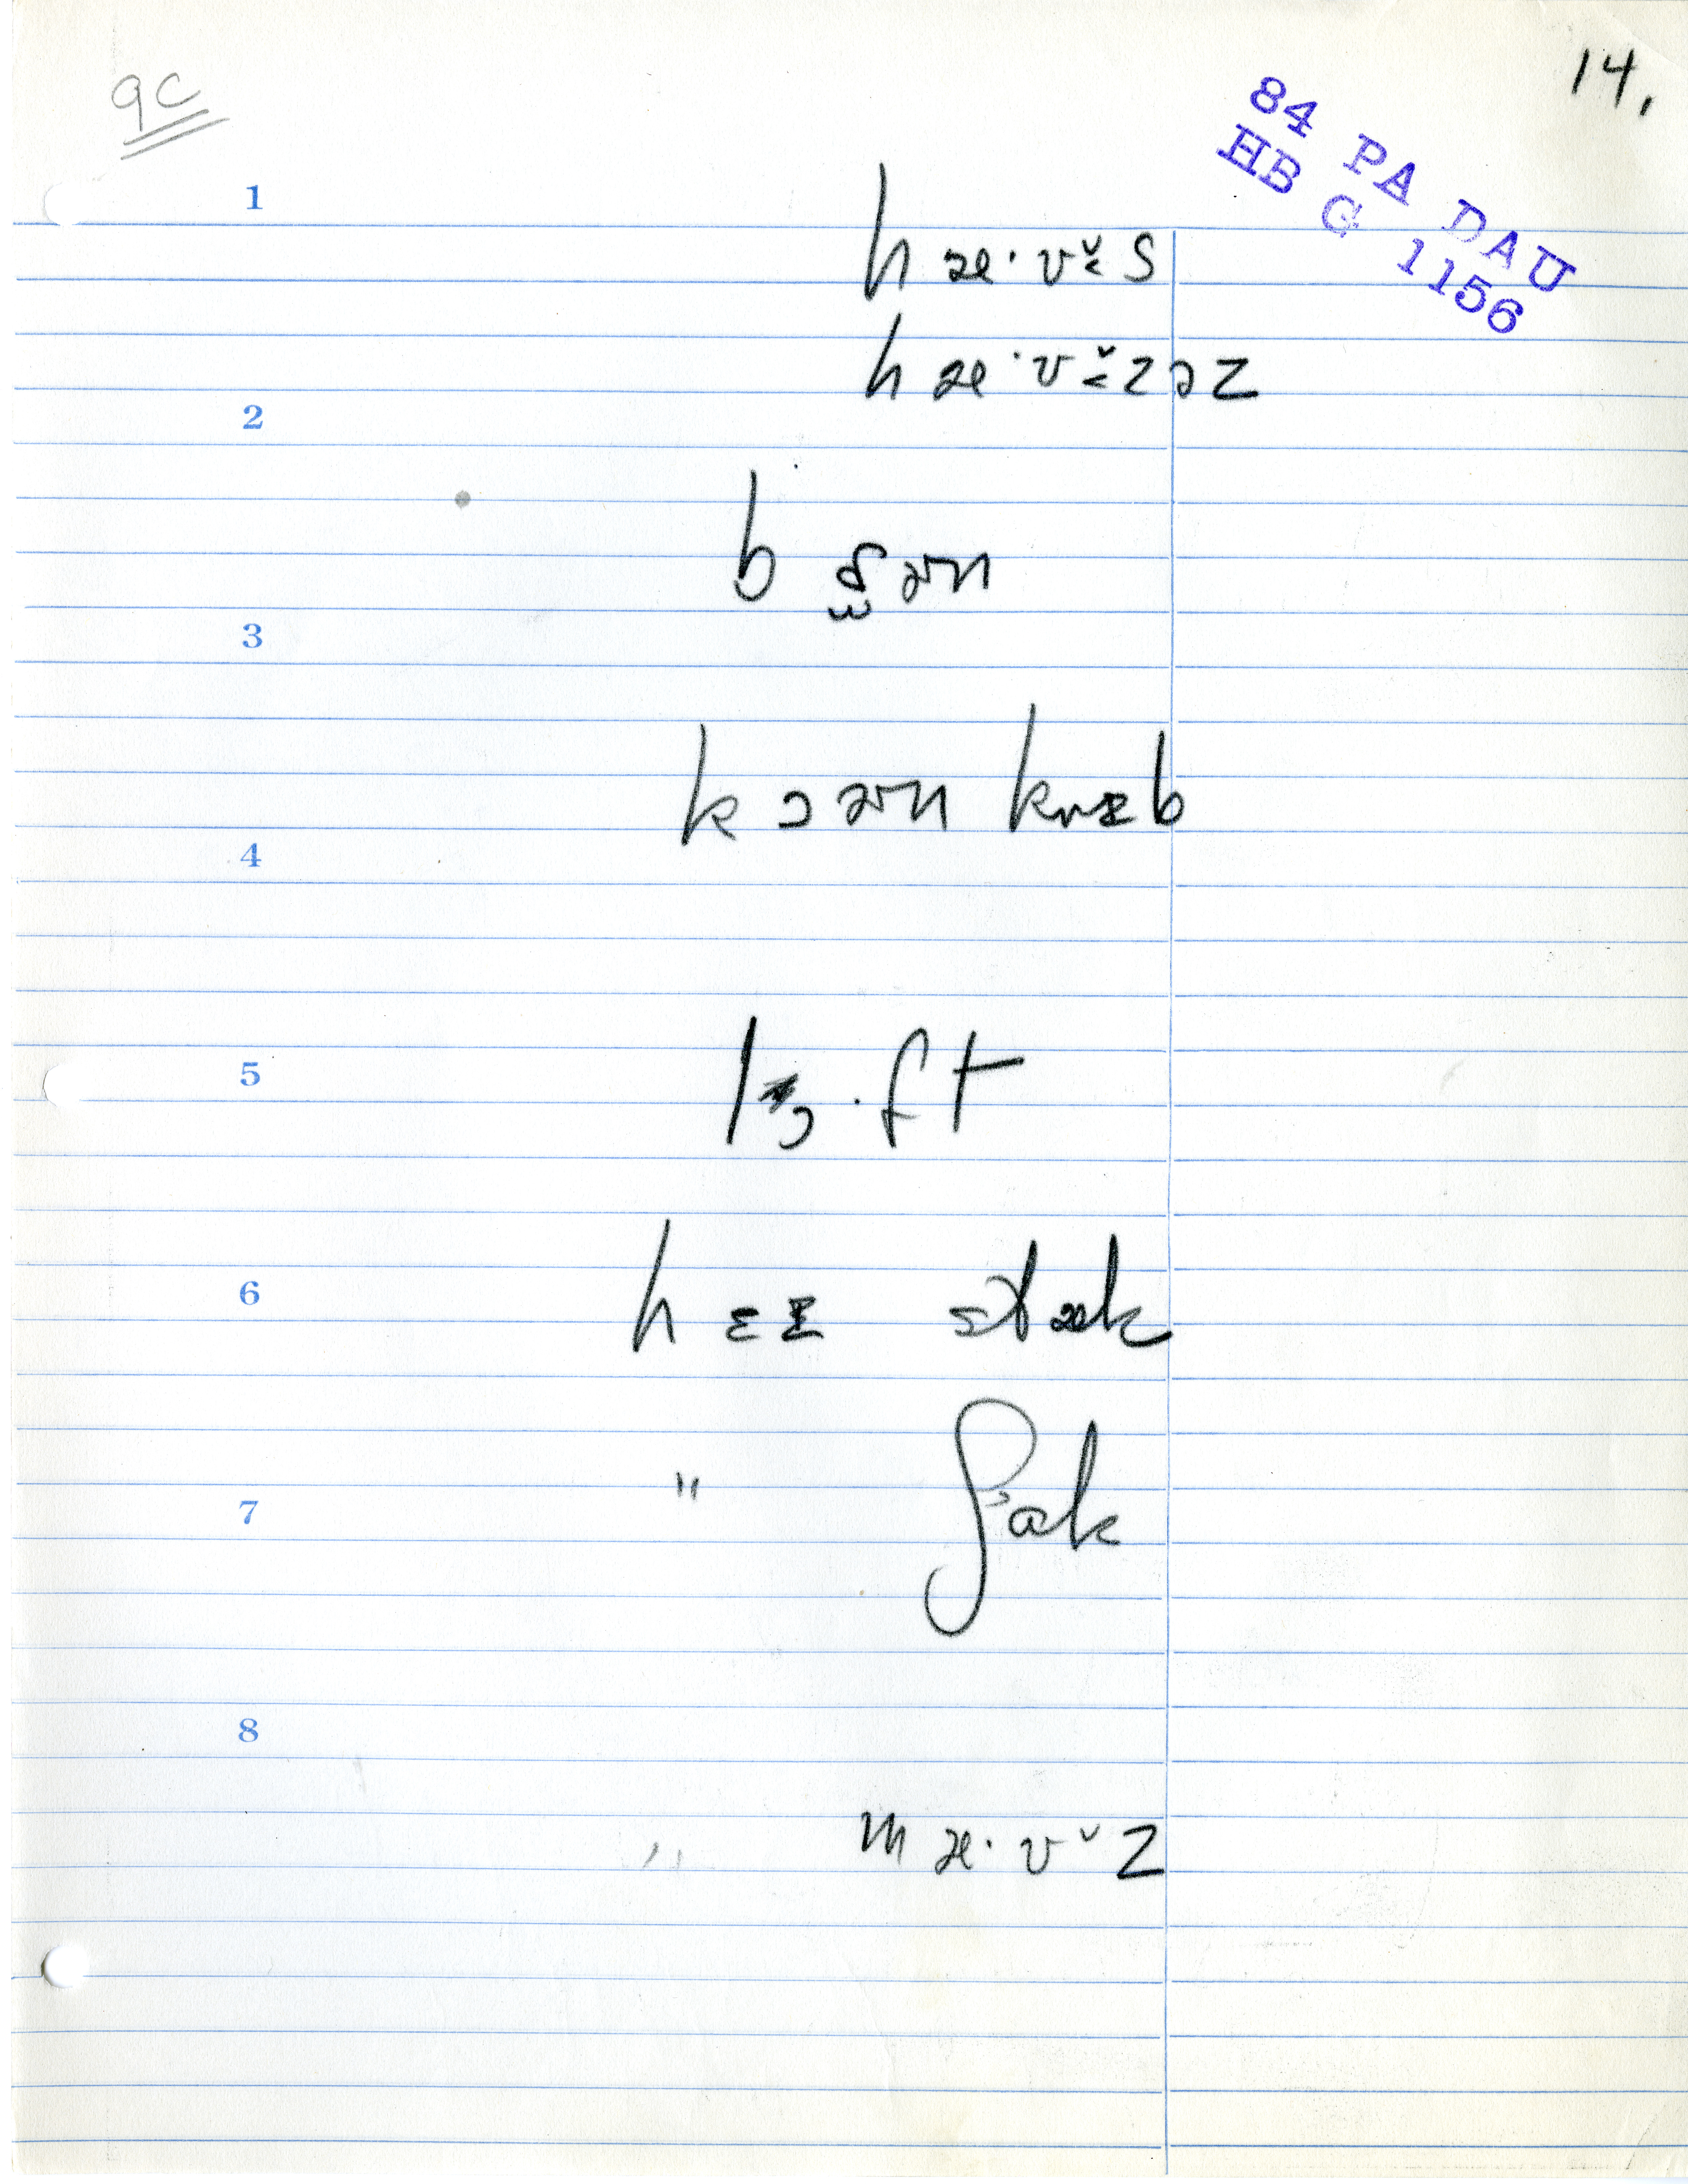 qc
14.
84 PA DAU
HB G 1156
1
hæ·ʊ̆s
hæ·ʊ̆zəz
2
3
kɔən krɪb
4
5
lɔ·ft
6
hɛɪ stæk
7
" ʃak
8
" mæ·ʊ̆z